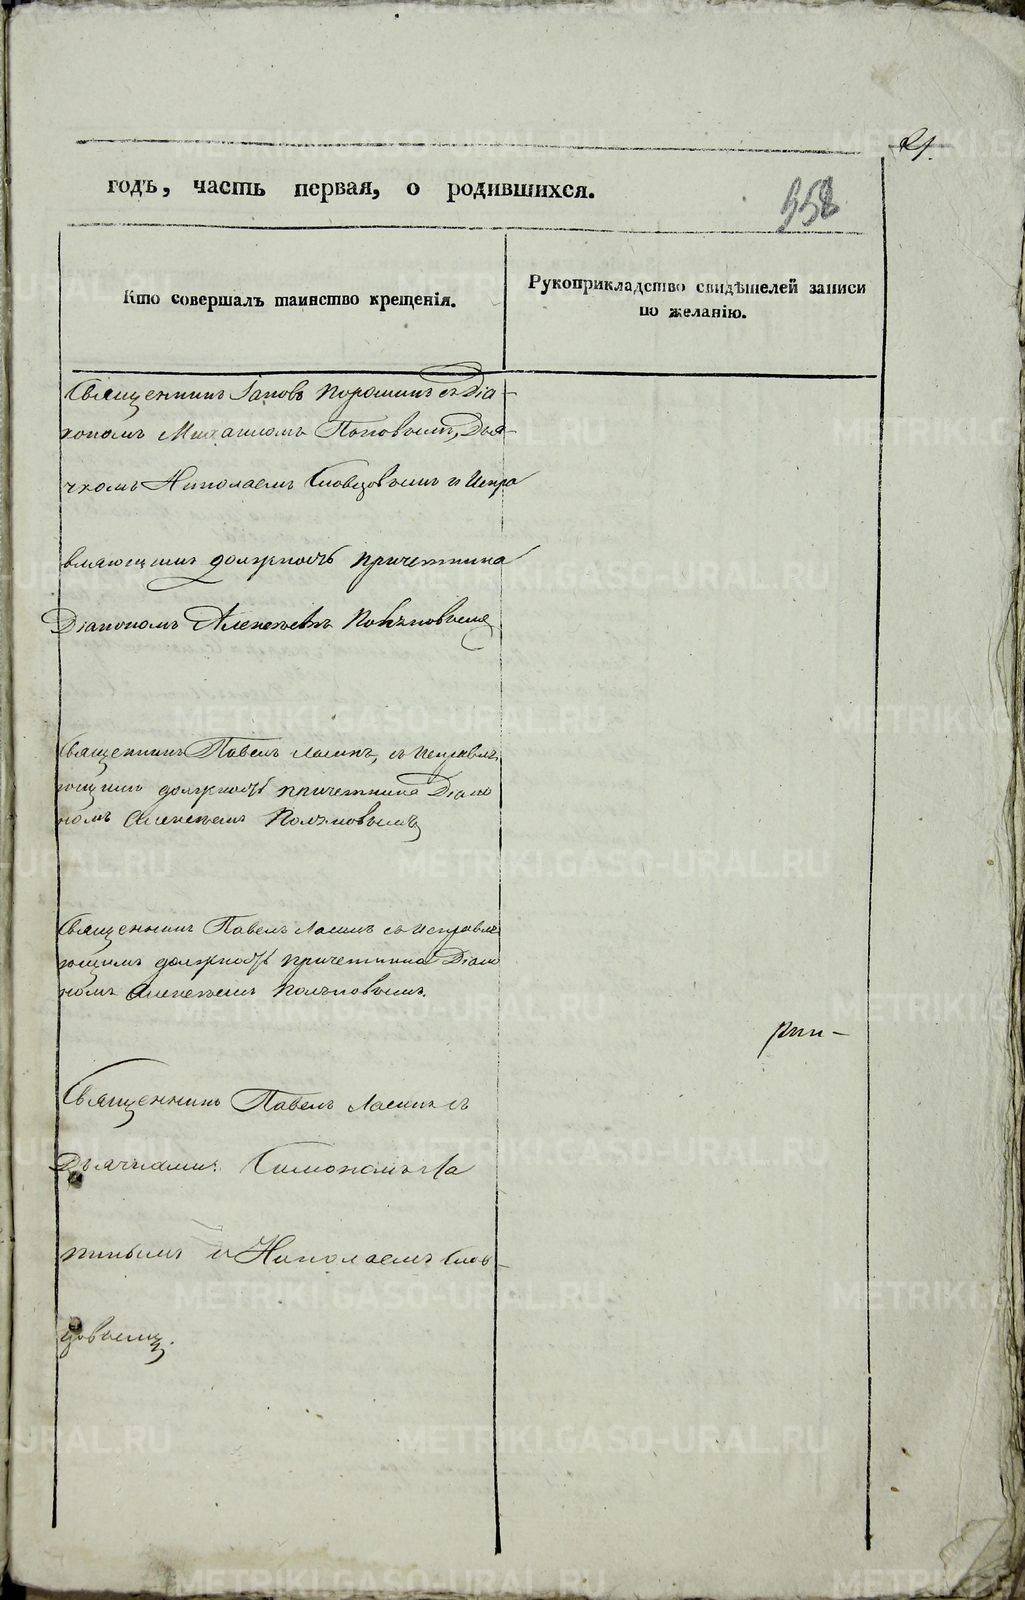 21.
годъ, часть первая, о родившихся.
558
Кто совершалъ таинство крещенія.
Рукоприкладство свидѣтелей записи
по желанію.
Священникъ Іаковъ Порошинъ съ Діа-
кономъ Михаиломъ Поповымъ, Дья-
чкомъ Николаемъ Словцовымъ и Испра
вляющимъ должность причетника
Діакономъ Алексѣемъ
Священникъ Павелъ Ласинъ, съ Исправля
ющимъ должность причетника Діако
номъ Алексѣемъ
Священникъ Павелъ Ласинъ съ исправля
ющимъ должность причетника Діако
номъ Алексѣемъ
Священникъ Павелъ Ласинъ съ
Дьячками: Симономъ Ла
пинымъ и Николаемъ Слов-
цовымъ.
METRIKI.GASO-URAL.RU